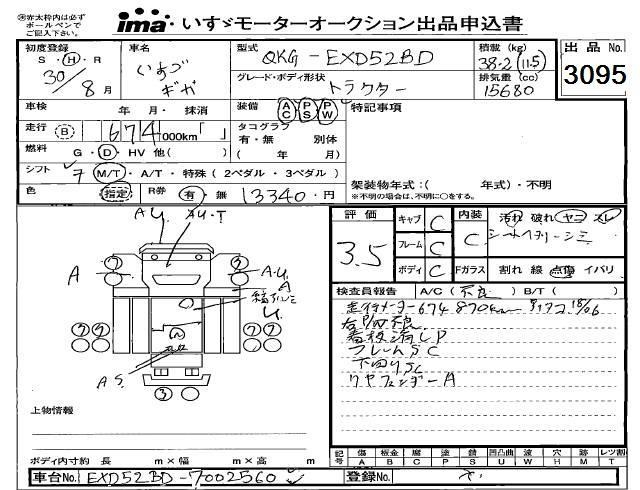 ※赤太枠内は必ず
ボールペンで
ご記入下さい。
ima いすゞモーターオークション出品申込書
初度登録
S・H・R
30/8月
車名
いすゞ
ギガ
型式
QKG-EXD52BD
グレード・ボディ形状
トラクター
積載(kg)
38.2(11.5)
排気量(cc)
15680
出品No.
3095
車検 年 月・抹消
走行 B 674,000km「 」
燃料 G・D・HV 他( )
装備 AC PS PW
タコグラフ
有・無 別体
( 年 月)
シフト 7 M/T・A/T・特殊(2ペダル・3ペダル)
色 指定 R券 有・無 13340・円
特記事項
架装物年式:( 年式)・不明
※不明の場合は、不明に○をする。
評価
3.5
キャブ C
フレーム C
ボディ C
内装 C
Fガラス
汚れ 破れ ヤニ スレ
割れ 線 点傷 イバリ
検査員報告 A/C(不良) B/T( )
走行メーター674870km
看板消しP
フレームSC
下回りSC
リヤフェンダーA
AU
AU・T
A
A・U
A
U
AS
7 7
7 7 7 7
3
上物情報
ボディ内寸約 長 m×幅 m×高 m
記号
傷 板金 腐 塗 錆 凹凸曲 波 穴 跡 レツ割
A B C P S U W H M T
車台No. EXD52BD-7002560
登録No.